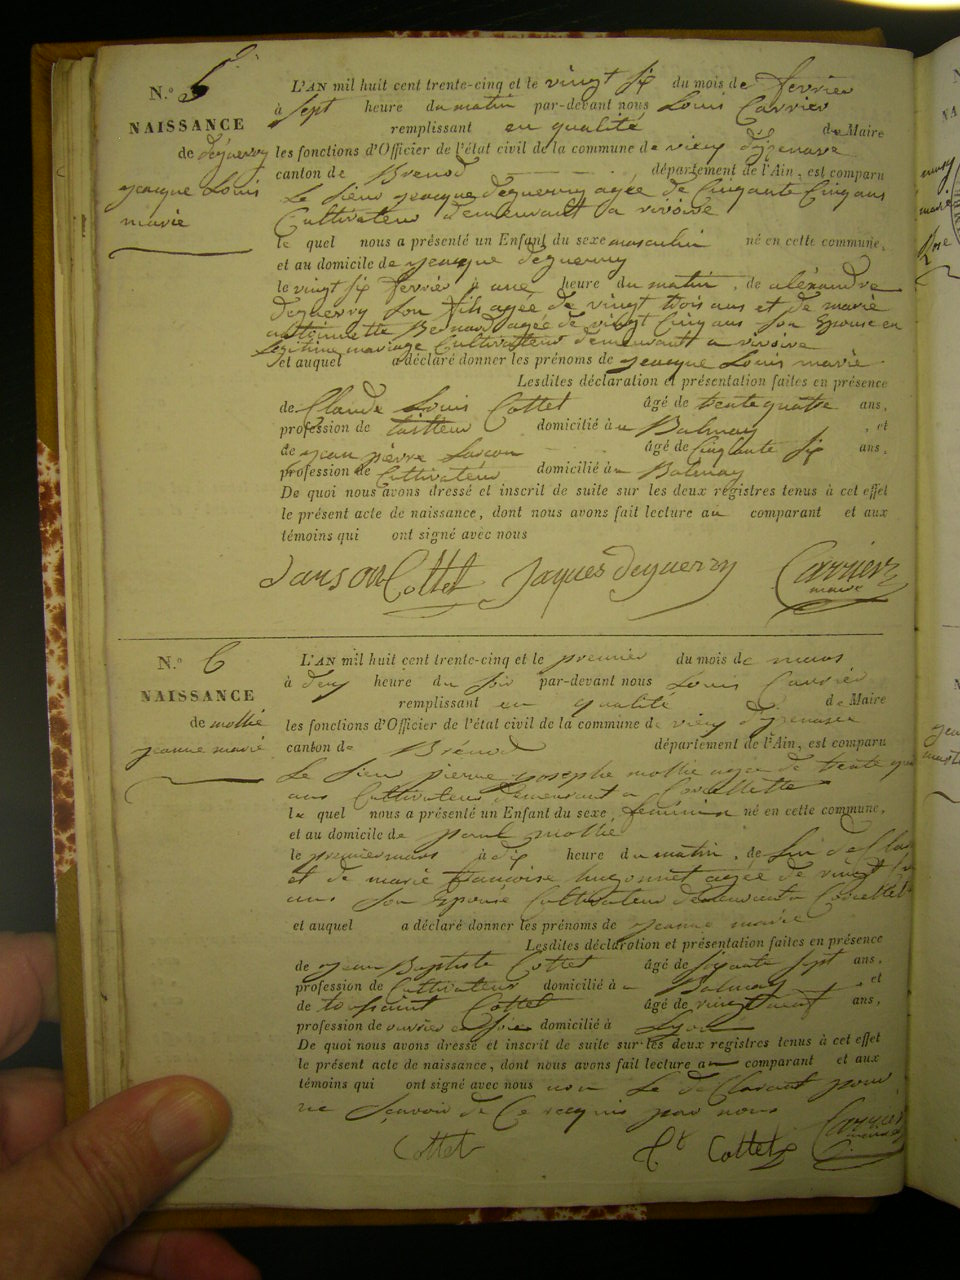 N.° 5
L'AN mil huit cent trente-cinq et le vingt six du mois de fevrier
à sept heure du matin par-devant nous Louis Carrier
NAISSANCE
remplissant en qualité de Maire
de deguerry
les fonctions d'Officier de l'état civil de la commune de vieu d'yzenave
jeacque Louis
canton de Brenod département de l'Ain, est comparu
marie
Le sieur jeacque deguerry agée de Cinquante Cinq ans
Cultivateur demeurant a vivoire
le quel nous a présenté un Enfant du sexe masculin né en cette commune,
et au domicile de jeacque deguerry
le vingt six fevrier à une heure du matin, de aléxandre
deguerry son fils agée de vingt trois ans et de marie
antoinette Bernard agée de vingt Cinq ans son Epouse en
Legitime mariage Cultivateur demeurant a vivoire
et auquel a déclaré donner les prénoms de jeacque Louis marie
Lesdites déclaration et présentation faites en présence
de Claude Louis Cottet âgé de trente quatre ans,
profession de tailleur domicilié à Balmay, et
de jean pierre Sanson âgé de Cinquante six ans,
profession de Cultivateur domicilié à Balmay
De quoi nous avons dressé et inscrit de suite sur les deux registres tenus à cet effet
le présent acte de naissance, dont nous avons fait lecture au comparant et aux
témoins qui ont signé avec nous
Sanson Cottet Jaques deguerry Carrier
maire
N.° 6
L'AN mil huit cent trente-cinq et le premier du mois de mars
à deux heure du soir par-devant nous Louis Carrier
NAISSANCE
remplissant en qualité de Maire
de mollie
les fonctions d'Officier de l'état civil de la commune de vieu d'yzenave
jeanne marie
canton de Brénod département de l'Ain, est comparu
Le sieur pierre yosephe mollie agée de trente
ans Cultivateur demeurant a Corcellette
le quel nous a présenté un Enfant du sexe féminin né en cette commune,
et au domicile de paul mollie
le premier mars à dix heure du matin, de lui
et de marie francoise hugonnet agée de vingt
ans son Epouse Cultivateur demeurant a
et auquel a déclaré donner les prénoms de jeanne marie
Lesdites déclaration et présentation faites en présence
de jean Baptiste Cottet âgé de soixante sept ans,
profession de Cultivateur domicilié à Balmay, et
de toussaint Cottet âgé de vingt neuf ans,
profession de ouvrier en soie domicilié à Lyon
De quoi nous avons dressé et inscrit de suite sur les deux registres tenus à cet effet
le présent acte de naissance, dont nous avons fait lecture au comparant et aux
témoins qui ont signé avec nous non Le de Clarant pour
ne sçavoir de Ce requis par nous
Cottet Ct Cottet Carrier
maire